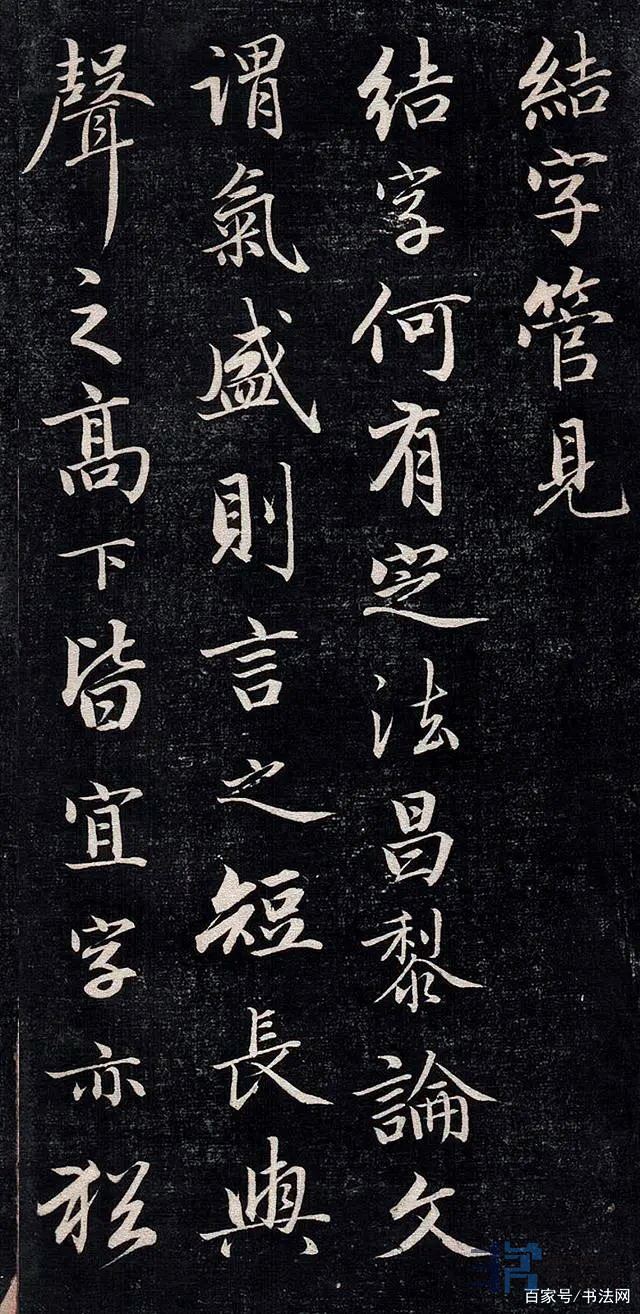 結字管見
结字何有定法昌黎論文
謂氣盛則言之短長與
聲之高下皆宜字亦猶
百家号/书法网